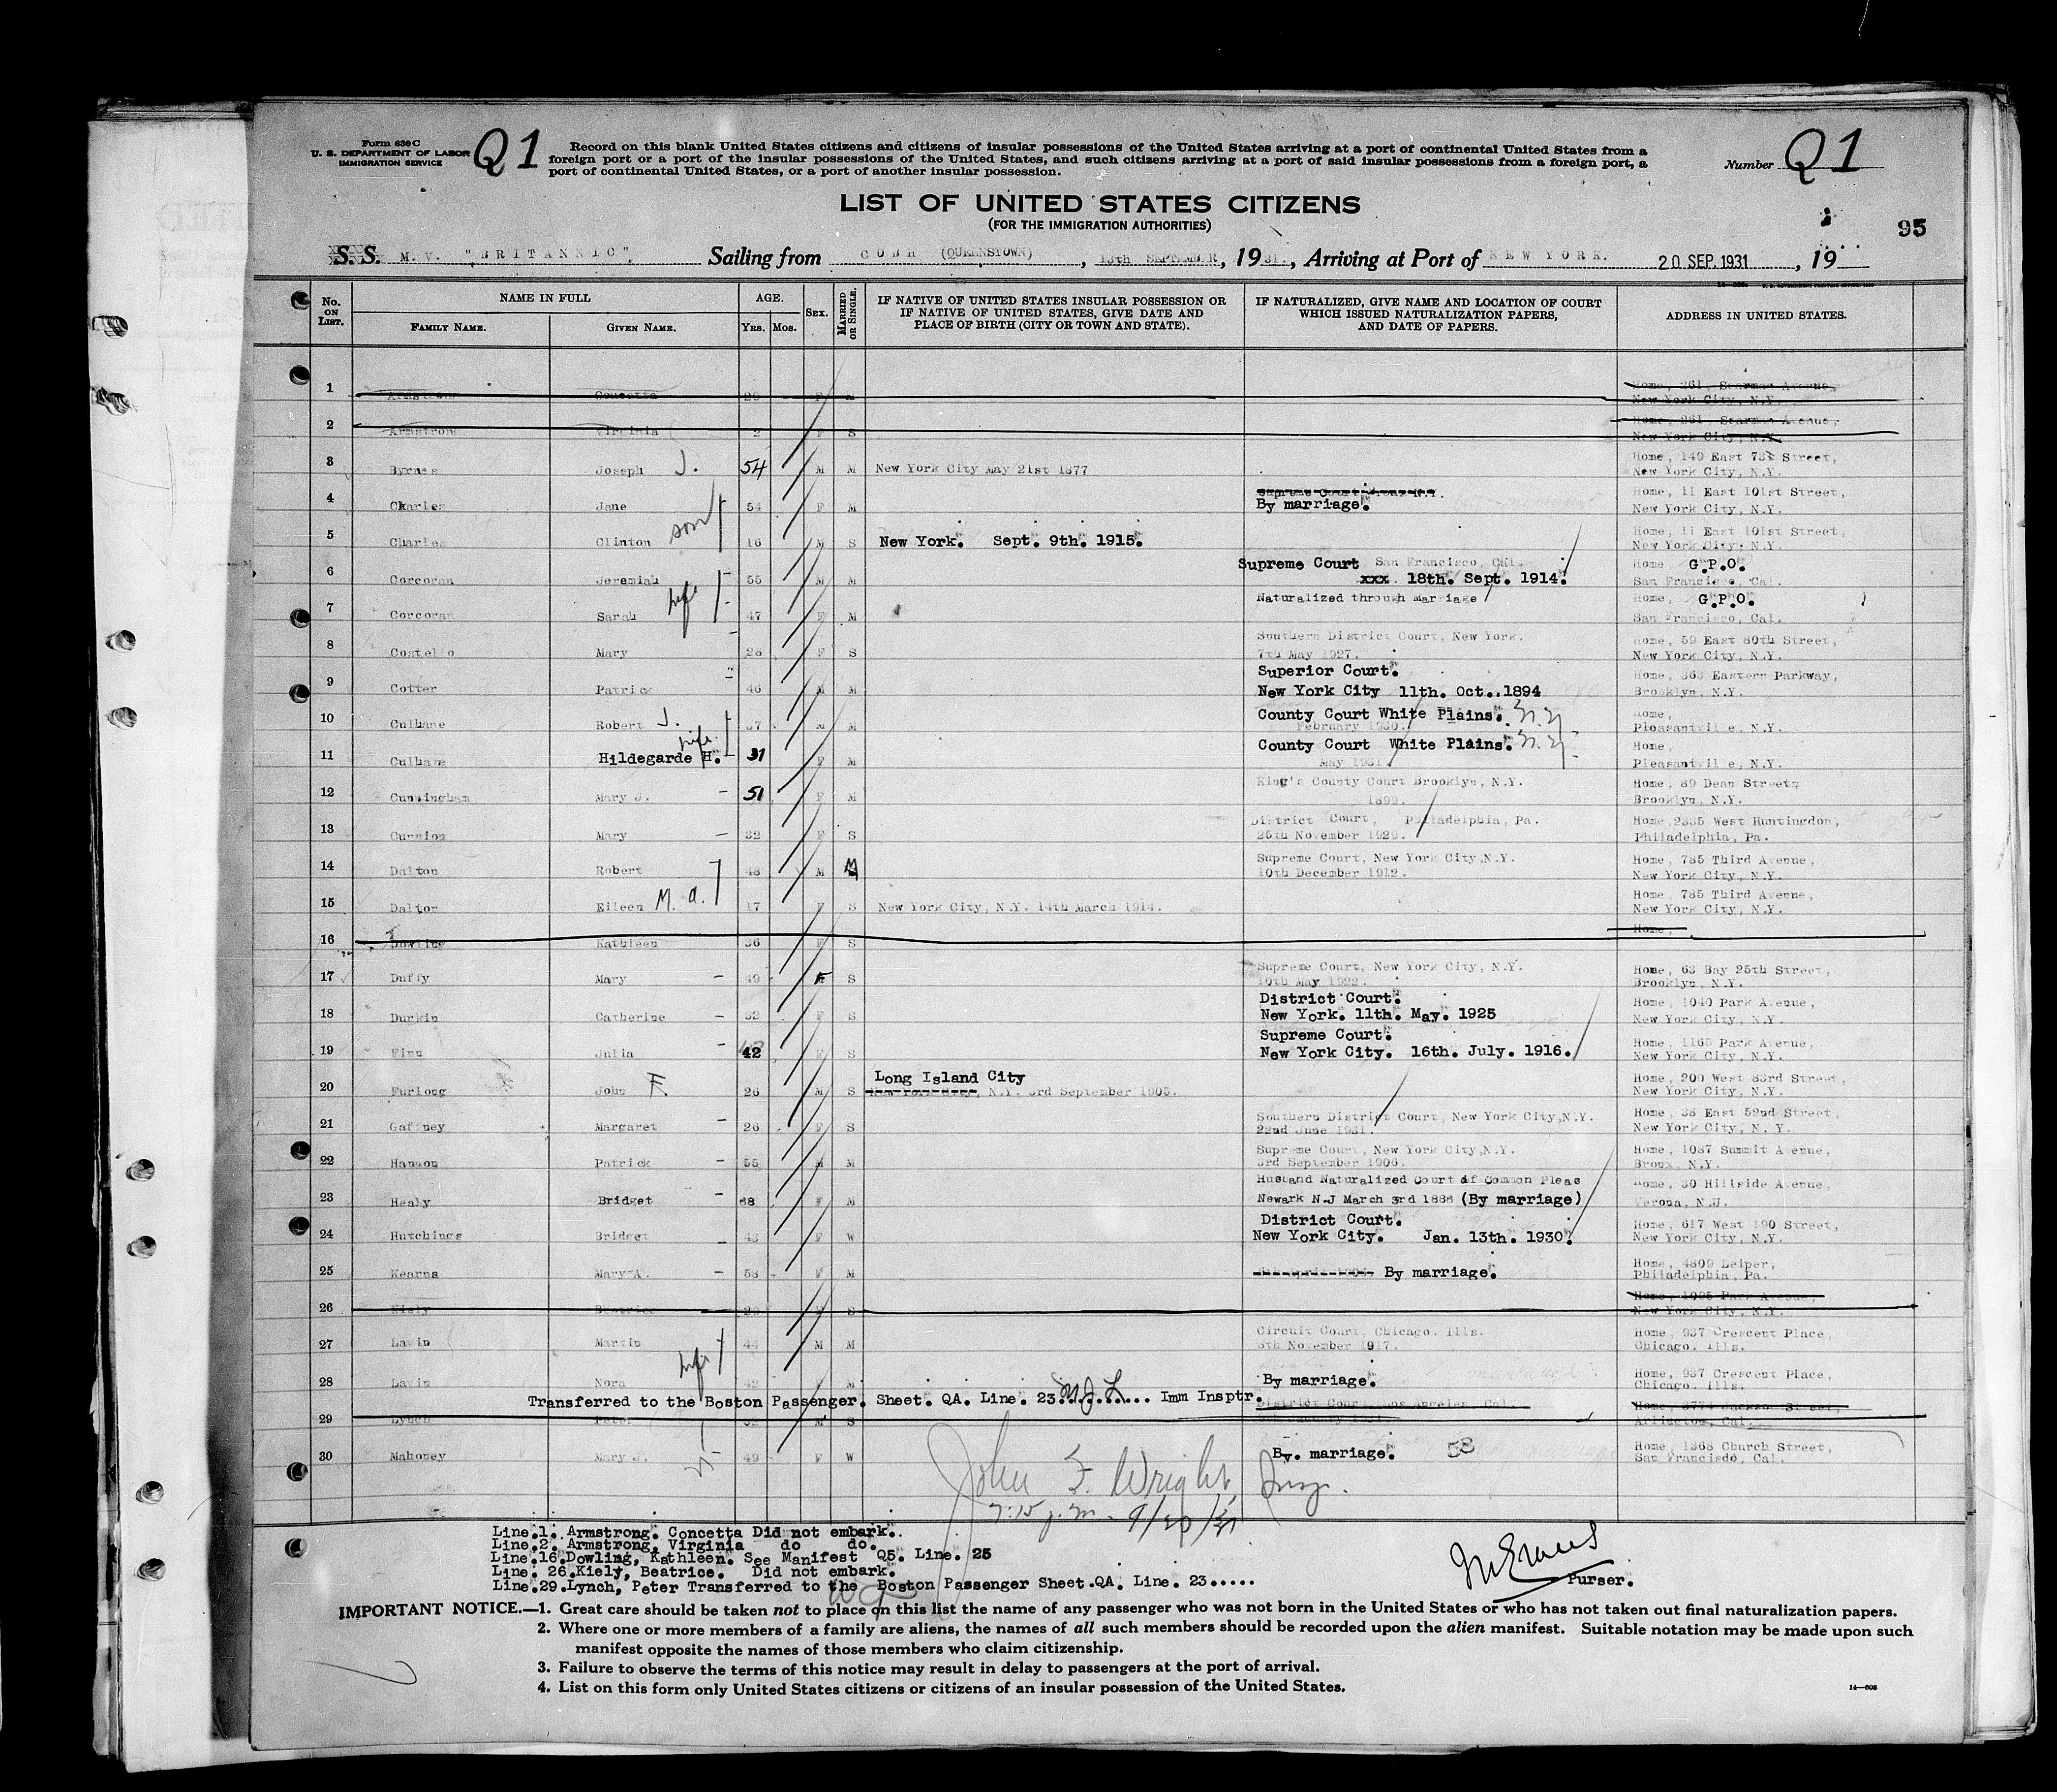 Form 630 C
U. S. DEPARTMENT OF LABOR
IMMIGRATION SERVICE
Q1
Record on this blank United States citizens and citizens of insular possessions of the United States arriving at a port of continental United States from a
foreign port or a port of the insular possessions of the United States, and such citizens arriving at a port of said insular possessions from a foreign port, a
port of continental United States, or a port of another insular possession.
Number Q1
LIST OF UNITED STATES CITIZENS
(FOR THE IMMIGRATION AUTHORITIES)
95
S. S. M. V. "BRITANNIC", Sailing from COBH (QUEENSTOWN), 13th SEPTEMBER, 1931., Arriving at Port of NEW YORK. 20 SEP. 1931, 19
No. ON LIST.
NAME IN FULL
FAMILY NAME.
GIVEN NAME.
AGE.
YRS.
MOS.
SEX.
MARRIED OR SINGLE.
IF NATIVE OF UNITED STATES INSULAR POSSESSION OR
IF NATIVE OF UNITED STATES, GIVE DATE AND
PLACE OF BIRTH (CITY OR TOWN AND STATE).
IF NATURALIZED, GIVE NAME AND LOCATION OF COURT
WHICH ISSUED NATURALIZATION PAPERS,
AND DATE OF PAPERS.
ADDRESS IN UNITED STATES.
1 Armstrong Concetta F M Home, 261, Seaman Avenue,
New York City, N.Y.
2 Armstrong Virginia 2 F S Home, 261, Seaman Avenue,
New York City, N.Y.
3 Byrnes Joseph J. 54 M M New York City May 21st 1877 Home, 149 East 73 Street,
New York City, N.Y.
4 Charles Jane 54 F M By marriage. Home, 11 East 101st Street,
New York City, N.Y.
5 Charles Clinton son 16 M S New York. Sept. 9th. 1915. Home, 11 East 101st Street,
New York City, N.Y.
6 Corcoran Jeremiah 55 M M Supreme Court San Francisco, Cal. Home, G.P.O.
xxx 18th. Sept. 1914. San Francisco, Cal.
7 Corcoran Sarah wife 47 F M Naturalized through Marriage Home, G.P.O.
San Francisco, Cal.
8 Costello Mary 28 F S Southern District Court, New York. Home, 59 East 80th Street,
7th May 1927. New York City, N.Y.
9 Cotter Patrick 46 M M Superior Court. Home, 363 Eastern Parkway,
New York City 11th. Oct. 1894 Brooklyn, N.Y.
10 Culhane Robert J. 37 M M County Court White Plains. N.Y. Home,
February 1930. Pleasantville, N.Y.
11 Culhane Hildegarde H. wife 31 F M County Court White Plains. N.Y. Home,
May 1931. Pleasantville, N.Y.
12 Cunningham Mary J. 51 F M King's County Court Brooklyn, N.Y. Home, 89 Dean Street,
1899. Brooklyn, N.Y.
13 Cunnion Mary 32 F S District Court, Philadelphia, Pa. Home, 2335 West Huntingdon,
25th November 1929. Philadelphia, Pa.
14 Dalton Robert 48 M M Supreme Court, New York City, N.Y. Home, 785 Third Avenue,
10th December 1912. New York City, N.Y.
15 Dalton Eileen M. A. 17 F S New York City, N.Y. 14th March 1914. Home, 785 Third Avenue,
New York City, N.Y.
16 Dowling Kathleen 36 F S Home,
17 Duffy Mary 49 F S Supreme Court, New York City, N.Y. Home, 63 Bay 25th Street,
10th May 1922. Brooklyn, N.Y.
18 Durkin Catherine 32 F S District Court. Home, 1040 Park Avenue,
New York. 11th. May. 1925 New York City, N.Y.
19 Finn Julia 42 F S Supreme Court. Home, 1165 Park Avenue,
New York City. 16th. July. 1916. New York City, N.Y.
20 Furlong John F. 26 M S Long Island City Home, 200 West 83rd Street,
N.Y. 3rd September 1905. New York City, N.Y.
21 Gaffney Margaret 26 F S Southern District Court, New York City, N.Y. Home, 38 East 52nd Street,
22nd June 1931. New York City, N. Y.
22 Hannon Patrick 55 M M Supreme Court, New York City, N.Y. Home, 1087 Summit Avenue,
3rd September 1906. Bronx, N.Y.
23 Healy Bridget 68 F M Husband Naturalized Court of Common Pleas Home, 30 Hillside Avenue,
Newark N.J March 3rd 1886 (By marriage) Verona, N.J.
24 Hutchings Bridget 43 F W District Court. Home, 617 West 190 Street,
New York City. Jan. 13th. 1930. New York City, N.Y.
25 Kearns Mary A. 53 F M By marriage. Home, 4809 Leiper,
Philadelphia, Pa.
26 Kiely Beatrice F S Home, 1025 Park Avenue,
New York City, N.Y.
27 Lavin Martin 44 M M Circuit Court, Chicago. Ills. Home, 937 Crescent Place,
8th November 1917. Chicago. Ills.
28 Lavin Nora wife 42 F M By marriage. Home, 937 Crescent Place,
Chicago. Ills.
Transferred to the Boston Passenger. Sheet. QA. Line. 23. M.J.L. Imm Insptr.
29 Lynch Peter 32 M S District Court, Los Angeles, Cal. Home, 3774 Jackson Street,
Arlington, Cal.
30 Mahoney Mary J. 49 F W By. marriage. 58 Home, 1368 Church Street,
San Francisco, Cal.
John F. Wright, Insp.
7:15 p.m. 9/20/31
Line.1. Armstrong. Concetta Did not embark.
Line.2. Armstrong, Virginia do do.
Line.16. Dowling, Kathleen. See Manifest Q5. Line. 25
Line. 26. Kiely, Beatrice. Did not embark.
Line.29. Lynch, Peter Transferred to the Boston Passenger Sheet.QA. Line. 23.....
Purser.
IMPORTANT NOTICE.—1. Great care should be taken not to place on this list the name of any passenger who was not born in the United States or who has not taken out final naturalization papers.
2. Where one or more members of a family are aliens, the names of all such members should be recorded upon the alien manifest. Suitable notation may be made upon such
manifest opposite the names of those members who claim citizenship.
3. Failure to observe the terms of this notice may result in delay to passengers at the port of arrival.
4. List on this form only United States citizens or citizens of an insular possession of the United States.
14—608